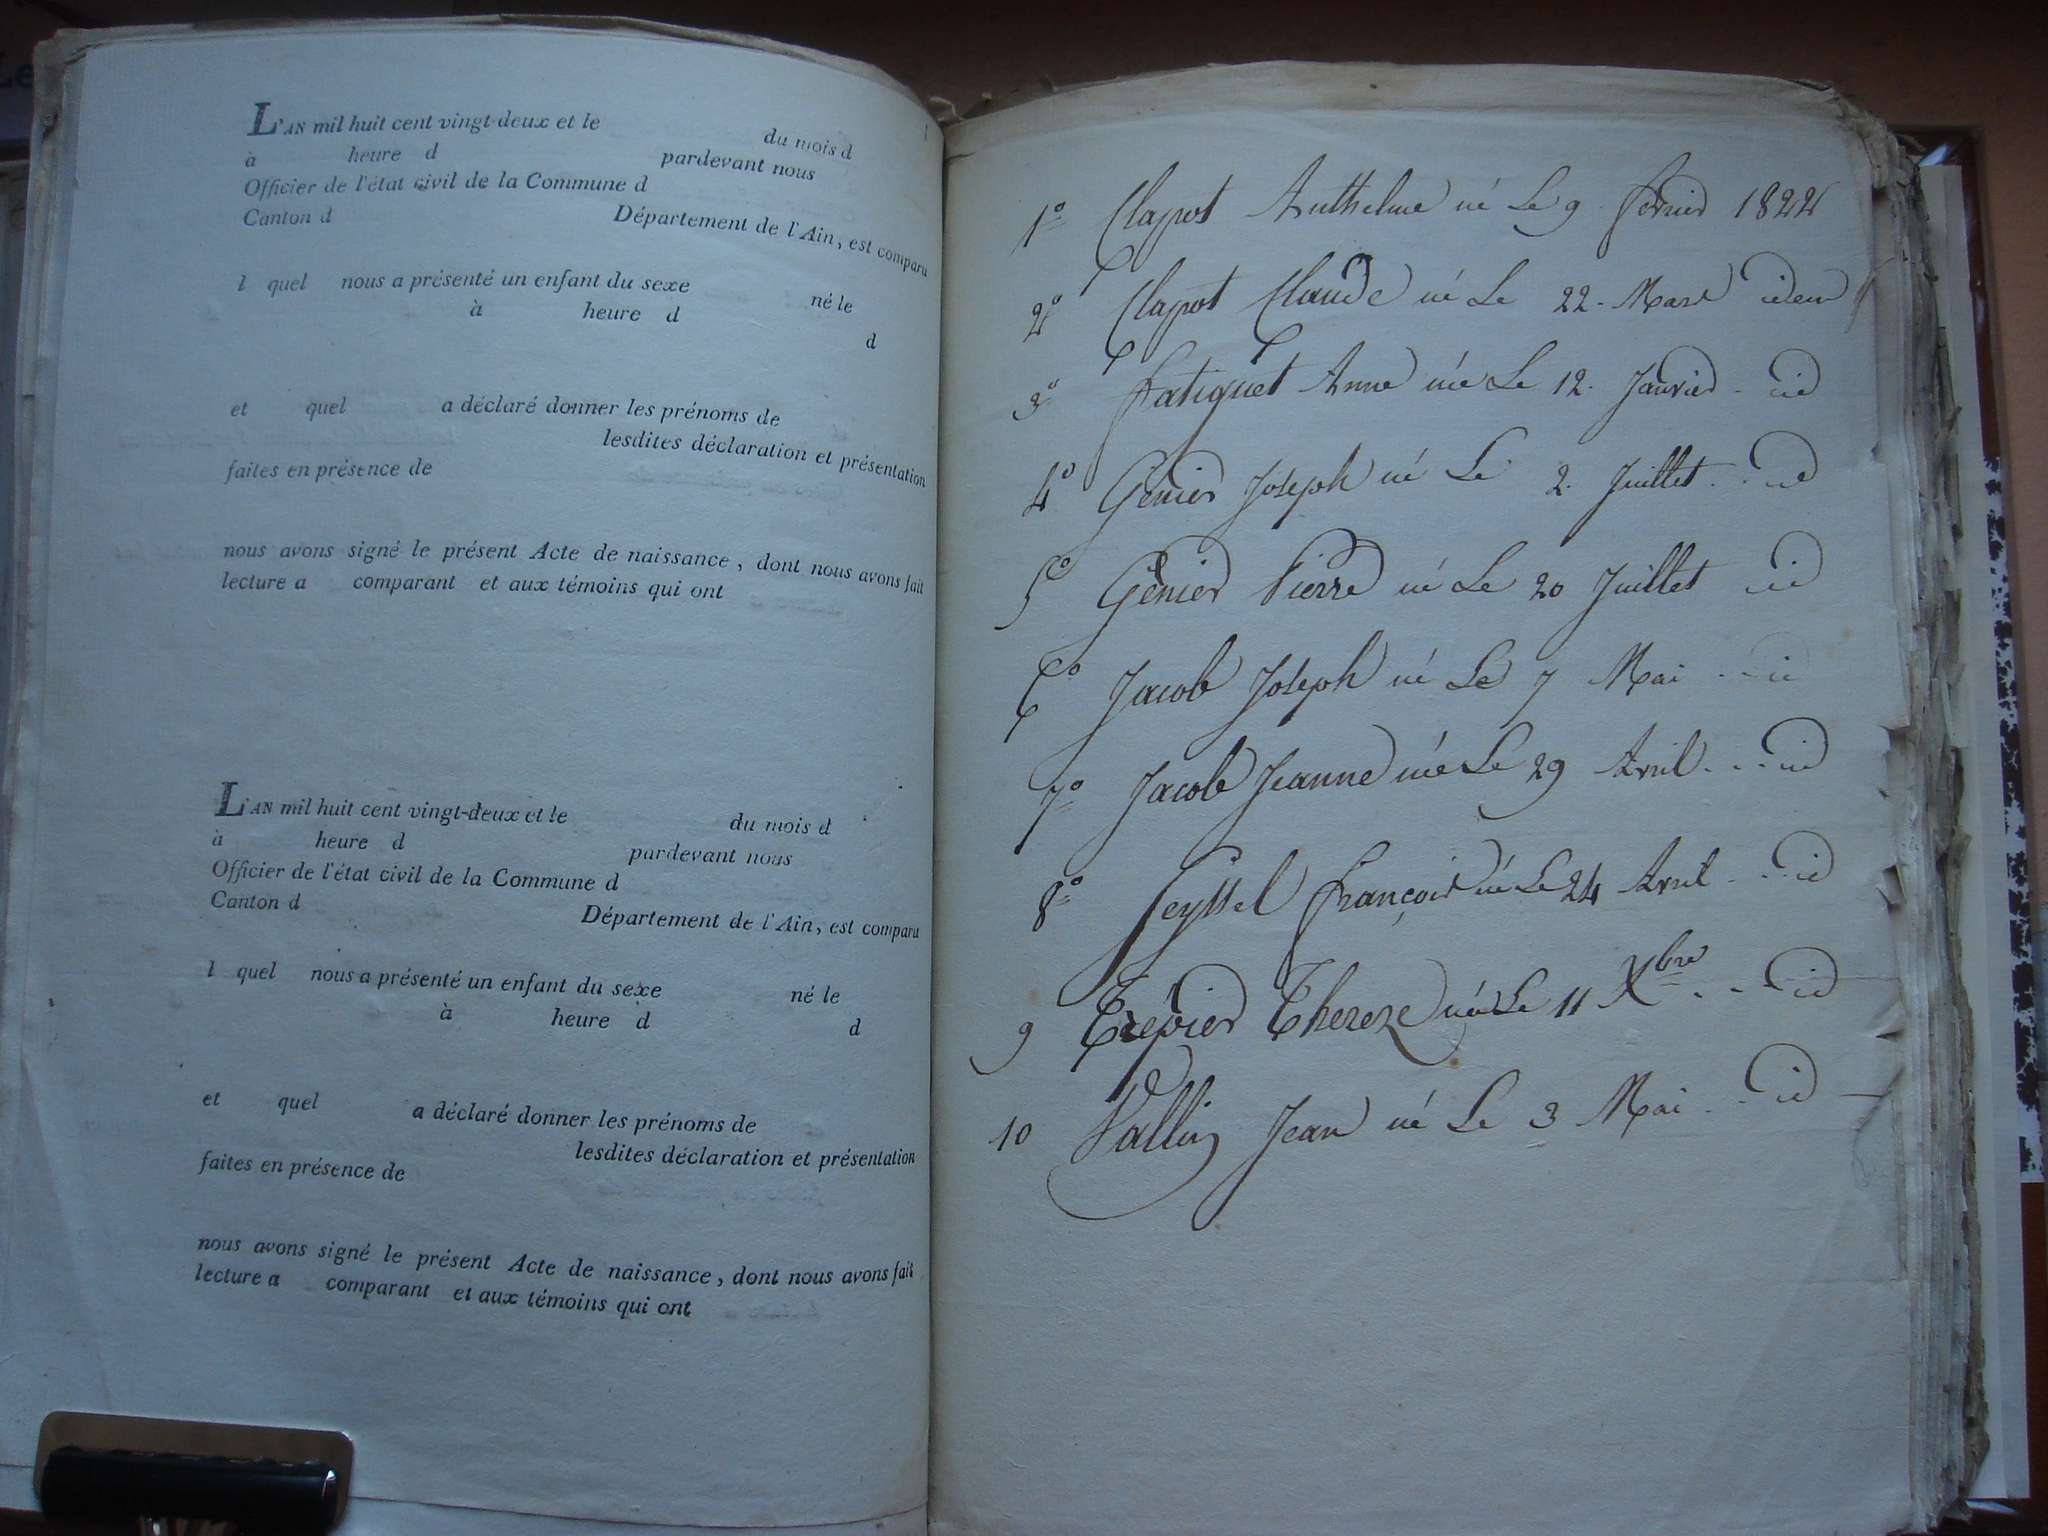 L'AN mil huit cent vingt-deux et le du mois d
à heure d pardevant nous
Officier de l'état civil de la Commune d
Canton d Département de l'Ain, est comparu
l quel nous a présenté un enfant du sexe né le
à heure d
d
et quel a déclaré donner les prénoms de
lesdites déclaration et présentation
faites en présence de
nous avons signé le présent Acte de naissance, dont nous avons fait
lecture a comparant et aux témoins qui ont
L'AN mil huit cent vingt-deux et le du mois d
à heure d pardevant nous
Officier de l'état civil de la Commune d
Canton d Département de l'Ain, est comparu
l quel nous a présenté un enfant du sexe né le
à heure d
d
et quel a déclaré donner les prénoms de
lesdites déclaration et présentation
faites en présence de
nous avons signé le présent Acte de naissance, dont nous avons fait
lecture a comparant et aux témoins qui ont
1° Clapot Anthelme né Le 9 fevrier 1822
2° Clapot Claude né Le 22. Mars idem
3° fatiguet Anne née Le 12. Janvier - id
4° Génier Joseph né Le 2. Juillet - - id
5° Génier Pierre né Le 20 Juillet id
6° Jacob Joseph né Le 7 Mai - - id
7° Jacob Jeanne née Le 29 Avril - - - id
8° Seyssel françois né Le 24 Avril - - - id
9 Trépier Thereze née Le 11 Xbre - - - id
10 Vallin Jean né Le 3 Mai - - id